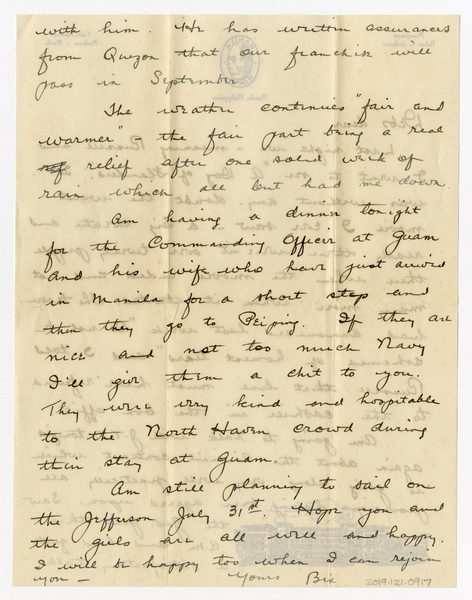 with him. He has written assurances
from Quezon that our franchise will
pass in September
The weather continues "fair and
warmer" - the fair part being a real
relief after one solid week of
rain which all but had me down.
Am having a dinner tonight
for the Commanding Officer at Guam
and his wife who have just arrived
in Manila for a short stop and
then they go to Peiping. If they are
nice and not too much Navy
I'll give them a chit to you.
They were very kind and hospitable
to the North Haven crowd during
their stay at Guam.
Am still planning to sail on
the Jefferson July 31st. Hope you and
the girls are all well and happy.
I will be happy too when I can rejoin
you -
Yours Bix
2019.121.0917